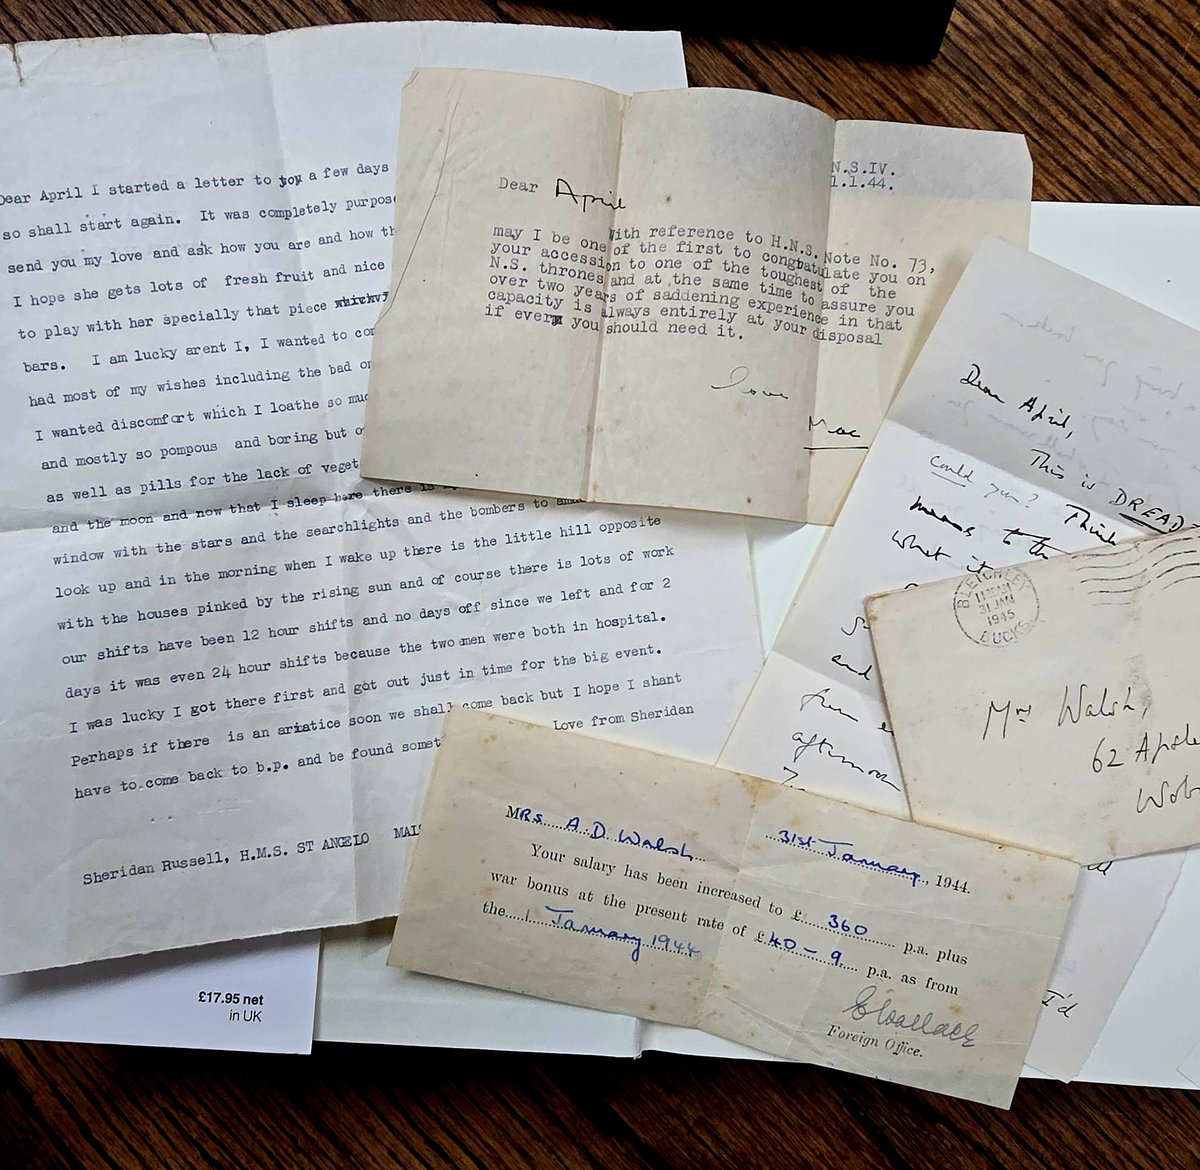 Dear April I started a letter to you a few days
so shall start again. It was completely purpose
send you my love and ask how you are and how th
I hope she gets lots of fresh fruit and nice
to play with her specially that piece
bars. I am lucky arent I, I wanted to co
had most of my wishes including the bad o
I wanted discomfort which I loathe so muc
and mostly so pompous and boring but o
as well as pills for the lack of veget
and the moon and now that I sleep here there is
window with the stars and the searchlights and the bombers to
look up and in the morning when I wake up there is the little hill opposite
with the houses pinked by the rising sun and of course there is lots of work
our shifts have been 12 hour shifts and no days off since we left and for 2
days it was even 24 hour shifts because the two men were both in hospital.
I was lucky I got there first and got out just in time for the big event.
Perhaps if there is an armatice soon we shall come back but I hope I shant
have to come back to b.p. and be found somet
Love from Sheridan
Sheridan Russell, H.M.S. ST ANGELO
N.S.IV.
1.1.44.
Dear April
With reference to H.N.S. Note No. 73,
may I be one of the first to congratulate you on
your accession to one of the toughest of the
N.S. thrones and at the same time to assure you
over two years of saddening experience in that
capacity is always entirely at your disposal
if ever you should need it.
love
Mac
Dear April,
This is DREAD
could you? Think
means to the
what it
and
from
afternoon
I'd
BLETCHLEY
31 JAN
1945
BUCKS
Mrs Walsh,
62 Apsle
Wob
MRS A D Walsh 31st January, 1944.
Your salary has been increased to £ 360 p.a. plus
war bonus at the present rate of £40-9 p.a. as from
the 1 January 1944
E Wallace
Foreign Office.
£17.95 net
in UK